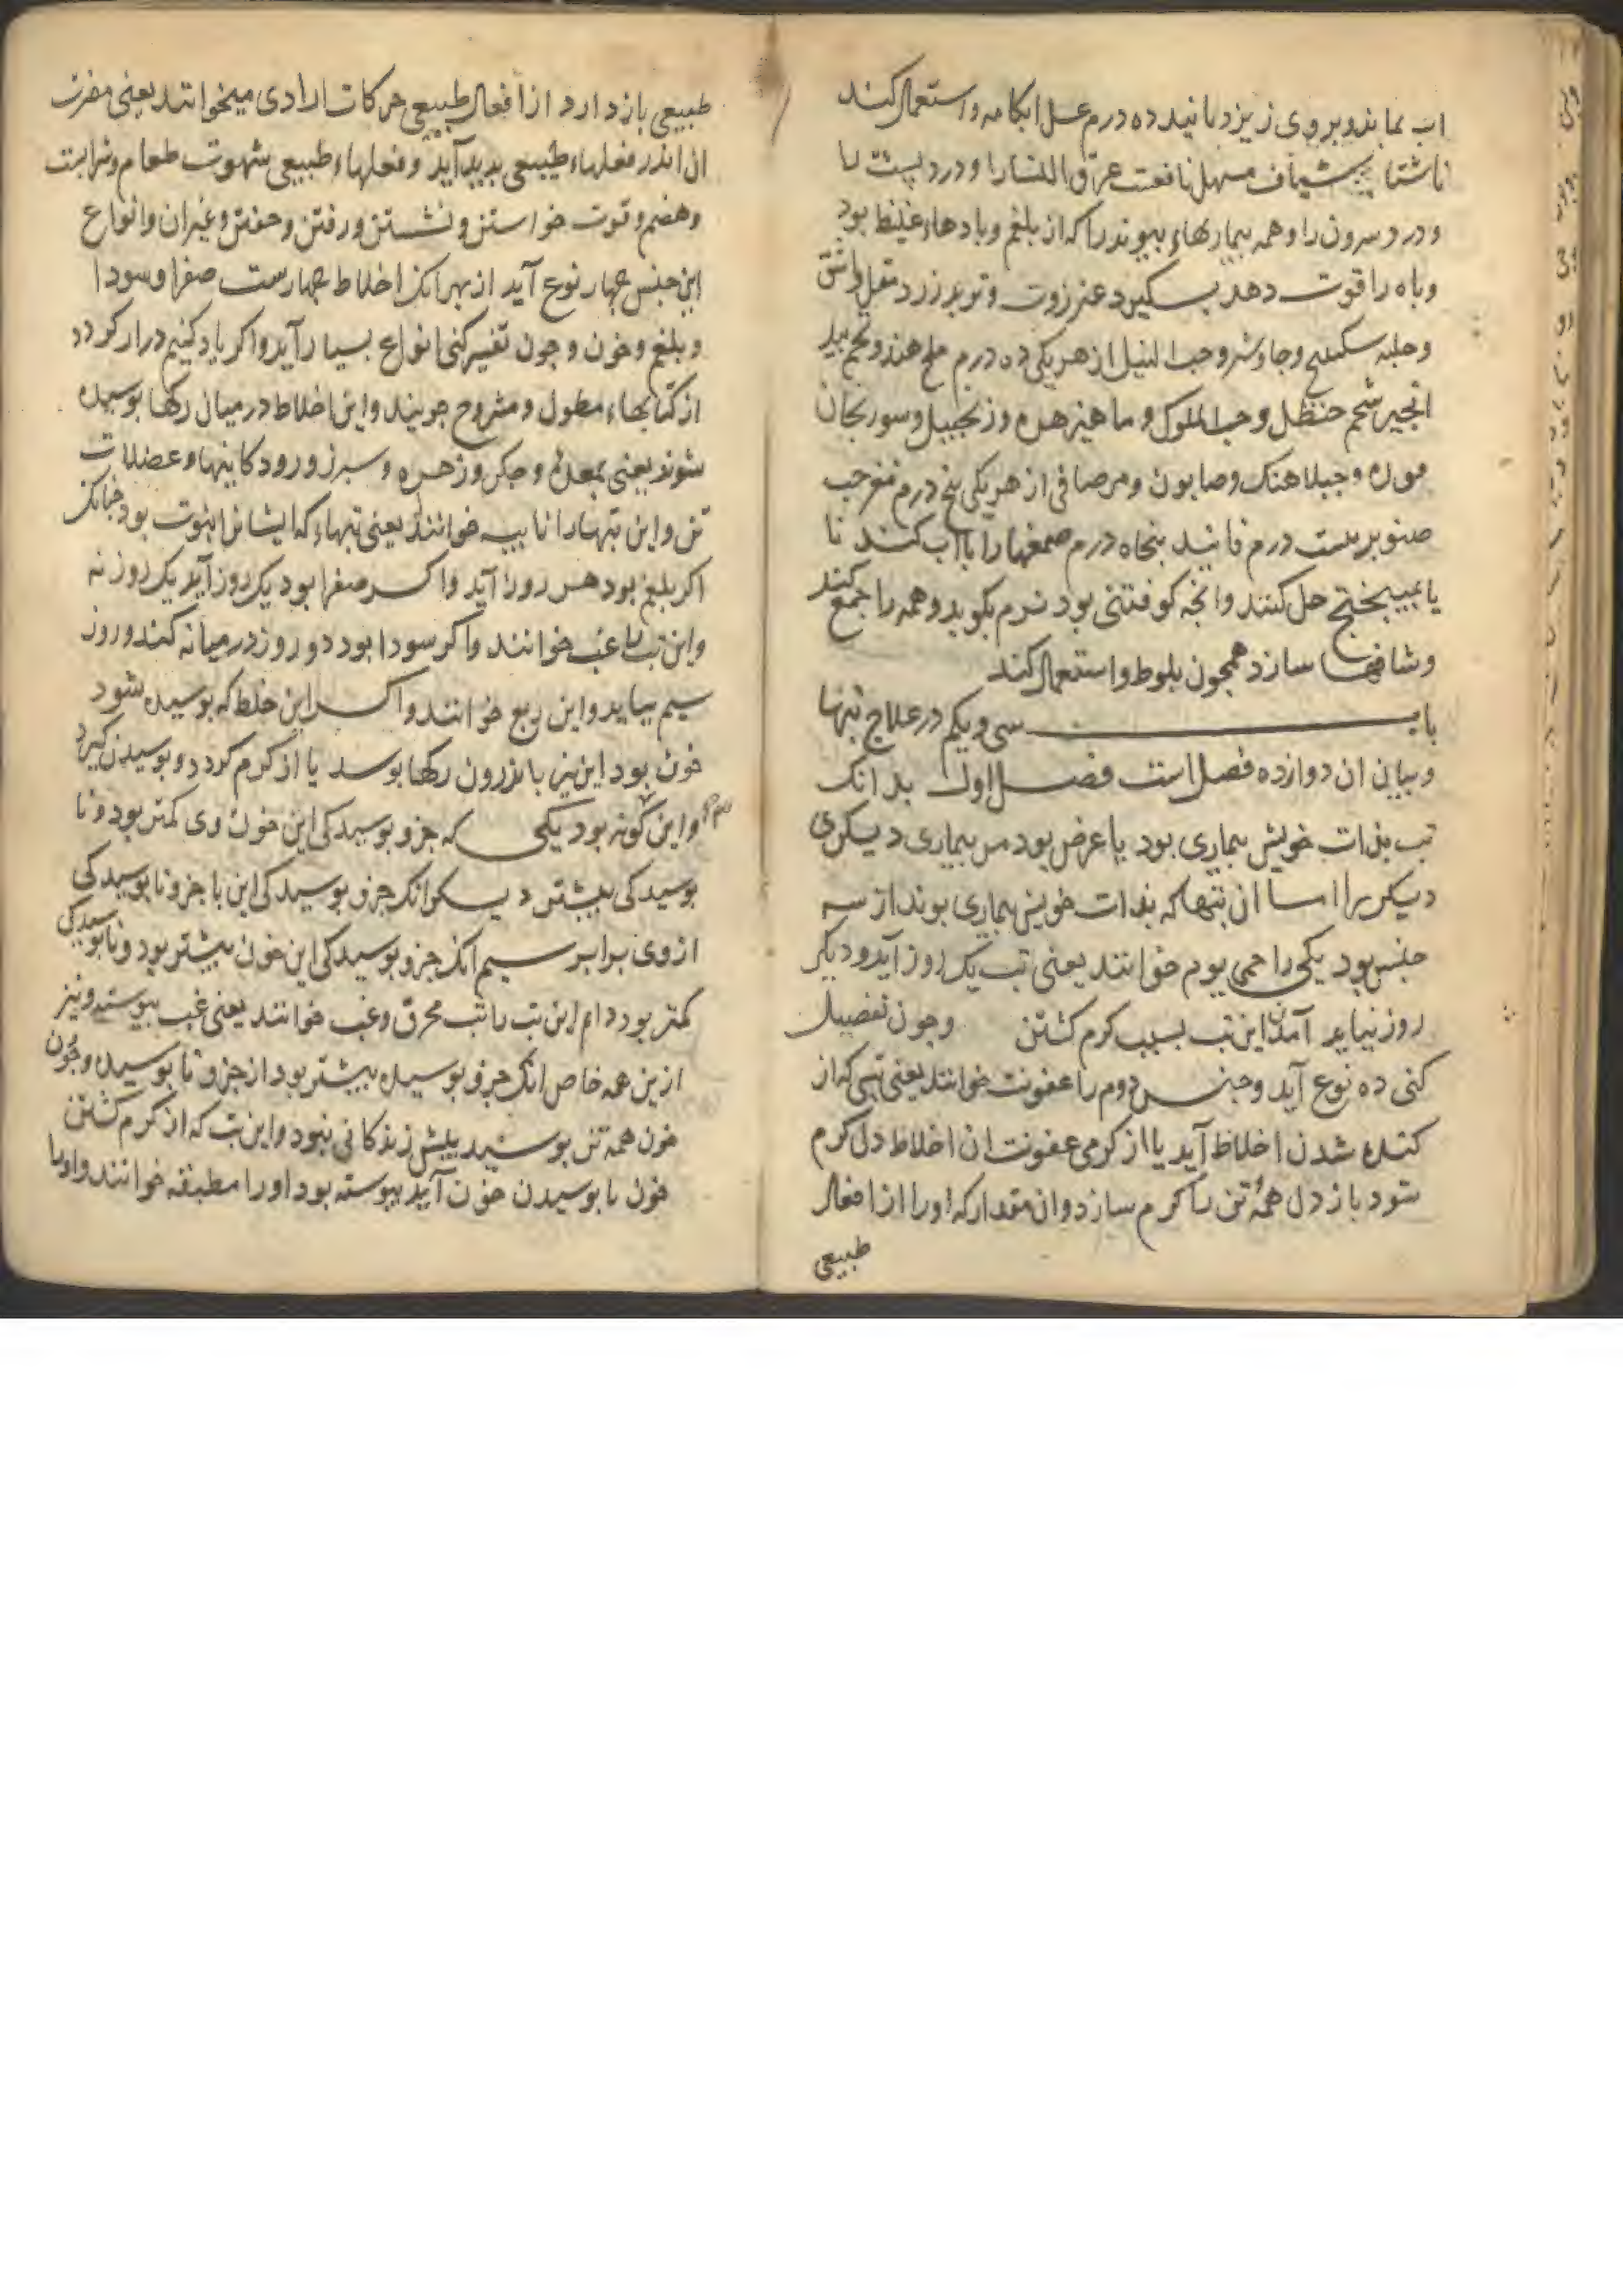 اب بماند و بر وی ریزد بانید ده درم عسل ابکامه و استعمال کند
ناشتا شیاف مسهل نافعست عرق النسا را و درد پشت را
و درد سرون را و همه بیماریهاء پیوند را که از بلغم و بادهاء غلیظ بود
و باه را قوت دهد بکیرد عنزروت و تربد زرد مقل واشق
و حلبه سکبینج و جاوشیر و حب النیل از هر یکی ده درم ملح هندو تخم بید
انجیر شحم حنظل و حب الملوک و ماهیزهره و زنجبیل و سورنجان
موره و جبلاهنک و صابون و مر صافی از هر یکی پنج درم مغز حب
صنوبر بیست درم فانید پنجاه درم صمغها را با اب کند نا
یا بمیبختج حل کنند و انجه کوفتنی بود نرم بکوبد و همه را جمع کند
و شافها سازد همجون بلوط و استعمال کند
باب سی و یکم در علاج تبها
و بیان ان دوازده فصل است فصل اول بدانک
تب بذات خویش بیماری بود یا عرض بود مر بیماری دیکری
دیکر را اما ان تبها که بذات خویش بیماری بوند از سه
جنس بود یکی را حمی یوم خوانند یعنی تب یک روز آید و دیکر
روز نیاید آمدن این تب بسبب کرم کشتن وجون تفصیل
کنی ده نوع آید و جنس دوم را عفونت خوانند یعنی تبی که از
کنده شدن اخلاط آید یا از کرمی عفونت ان اخلاط دل کرم
شود باز دل همه تن را کرم سازد وان مقدار که او را از افعال
طبیعی
طبیعی باز دارد از افعال طبیعی حرکات ارادی میخوانند یعنی مضرت
ان اندر فعلهاء طبیعی بدید آید و فعلهاء طبیعی شهوت طعام و شرابست
و هضم و قوت خواستن و نشستن و رفتن و خفتن و غیر ان و انواع
این جنس جهار نوع آید از بهر انک اخلاط جهارست صفرا و سودا
و بلغم و خون و جون تفسیر کنی انواع بسیار آید و اکر یاد کنیم دراز کردد
از کتابهاء مطول و مشروح جویند و این اخلاط در میان رکها بوسیده
شوند یعنی بمعده و جکر و زهره و سبرز و رودکانیها و عضلات
تن و این تبها را نایبه خوانند یعنی تبهاء که ایشان را نوبت بود جنانک
اکر بلغم بود هر روز آید و اکر صفرا بود یک روز آید یک روز نه
و این تب را غب خوانند و اکر سودا بود دو روز در میانه کند و روز
سیم بیاید و این ربع خوانند و اکر این خلط که بوسیده شود
خون بود این نیز باندرون رکها بوسد یا از کرم کردد و بوسیدن کیرد
و این سه کونه بود یکی که جزو بوسیدکی این خون وی کمتر بود و نا
بوسیدکی بیشتر دیکر انک جزو بوسیدکی این با جزو نابوسیدکی
از وی برابر سیم انک جزو بوسیدکی این خون بیشتر بود و نابوسیدکی
کمتر بود دام این تب را تب محرق و غب خوانند یعنی غب بیوسته و نیز
ازین همه خاص انک جزو بوسیده بیشتر بود از جزو نابوسیده و جون
خون همه تن بوسید بیش زندکانی نبود و این تب که از کرم کشتن
خون با بوسیدن خون آید بیوسته بود او را مطبقه خوانند و او را